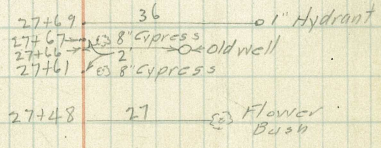 27+69 36 1" Hydrant
27+67 8" Cypress
27+66 2' old well
27+61 8" Cypress
27+48 27 Flower
Bush